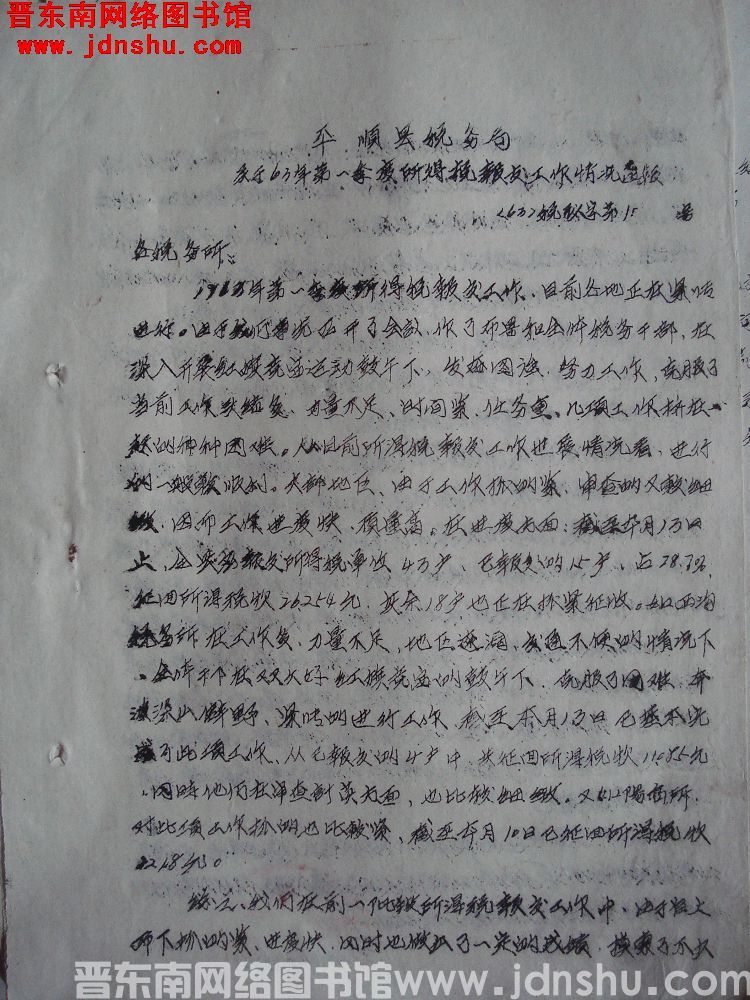 晋东南网络图书馆
www.jdnshu.com
平顺县税务局
关于63年第一季度所得税报交工作情况通报
(63)税秘字第15号
各税务所：
1963年第一季度所得税报交工作，目前各地正在紧张
进行。召开了会议，作了布置和全体税务干部，在
深入开展红旗竞运动鼓午下，发奋图强、努力工作，克服了
当前工作头绪多、力量不足、时间紧、任务重、几项工作挤在一
的种种困难。从目前所得税报交工作进度情况看，进行
的一般较顺利。大部地区、由于工作抓的紧、审查的又较细
致，因而工作进度快、质量高。在进度方面：截至本月13日
止，全县应报交所得税单位43户、已报交的15户，占28.7%，
征回所得税款26254元，其余18户也正在抓紧征收。如西沟
税务所在工作多、力量不足、地区辽阔、交通不便的情况下
、全体干下在红旗竞的鼓午下，克服了困难、奔
深山僻野、紧张的进行工作，截至本月13日已基本完
成了此项工作、从已报交的4户中，共征回所得税款11485元
，同时他们在审查方面，也比较细致。又如阳高所，
对此项工作抓的也比较紧、截至本月10日已征回所得税款
2218元。
总之，我们在前一阶段所得税报交工作中，由于自上
而下抓的紧、进度快，同时也做出了一定的成绩，摸索了不少
晋东南网络图书馆www.jdnshu.com